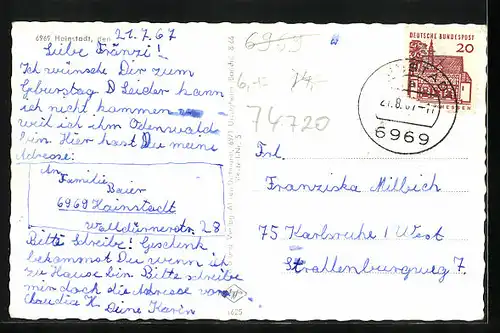 6969 Hainstadt, den
21.7.67
Liebe Fränzi!
Ich wünsche Dir zum
Geburstag D Leider kann
ich nicht kommen
weil ich im Odenwald
bin. Hier hast Du meine
Adresse:
An
Familie
Baier
6969 Hainstadt
Walldürnerstr. 28
Bitte Schreibe! Geschenk
bekommst Du wenn ich
zu Hause bin. Bitte schreibe
mir doch die Adresse von
Claudia K. Deine Karin
6969
74720
DEUTSCHE BUNDESPOST
20
6969
Frl.
Franziska Milbich
75 Karlsruhe 1 West
Strallenburgweg 7.